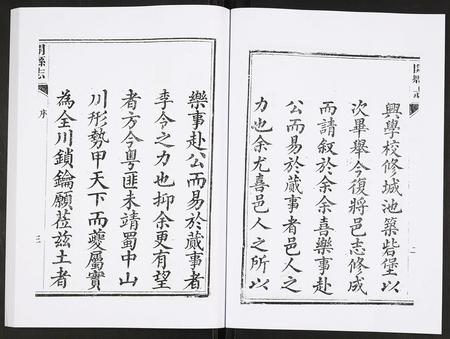 開縣志
興學校修城池築砦堡以
次畢舉今復將邑志修成
而請叙於余余喜樂事赴
公而易於蕆事者邑人之
力也余尤喜邑人之所以
二
樂事赴公而易於蕆事者
李令之力也抑余更有望
者方今粵匪未靖蜀中山
川形勢甲天下而夔屬實
為全川鎖鑰願莅兹土者
開縣志
序
三